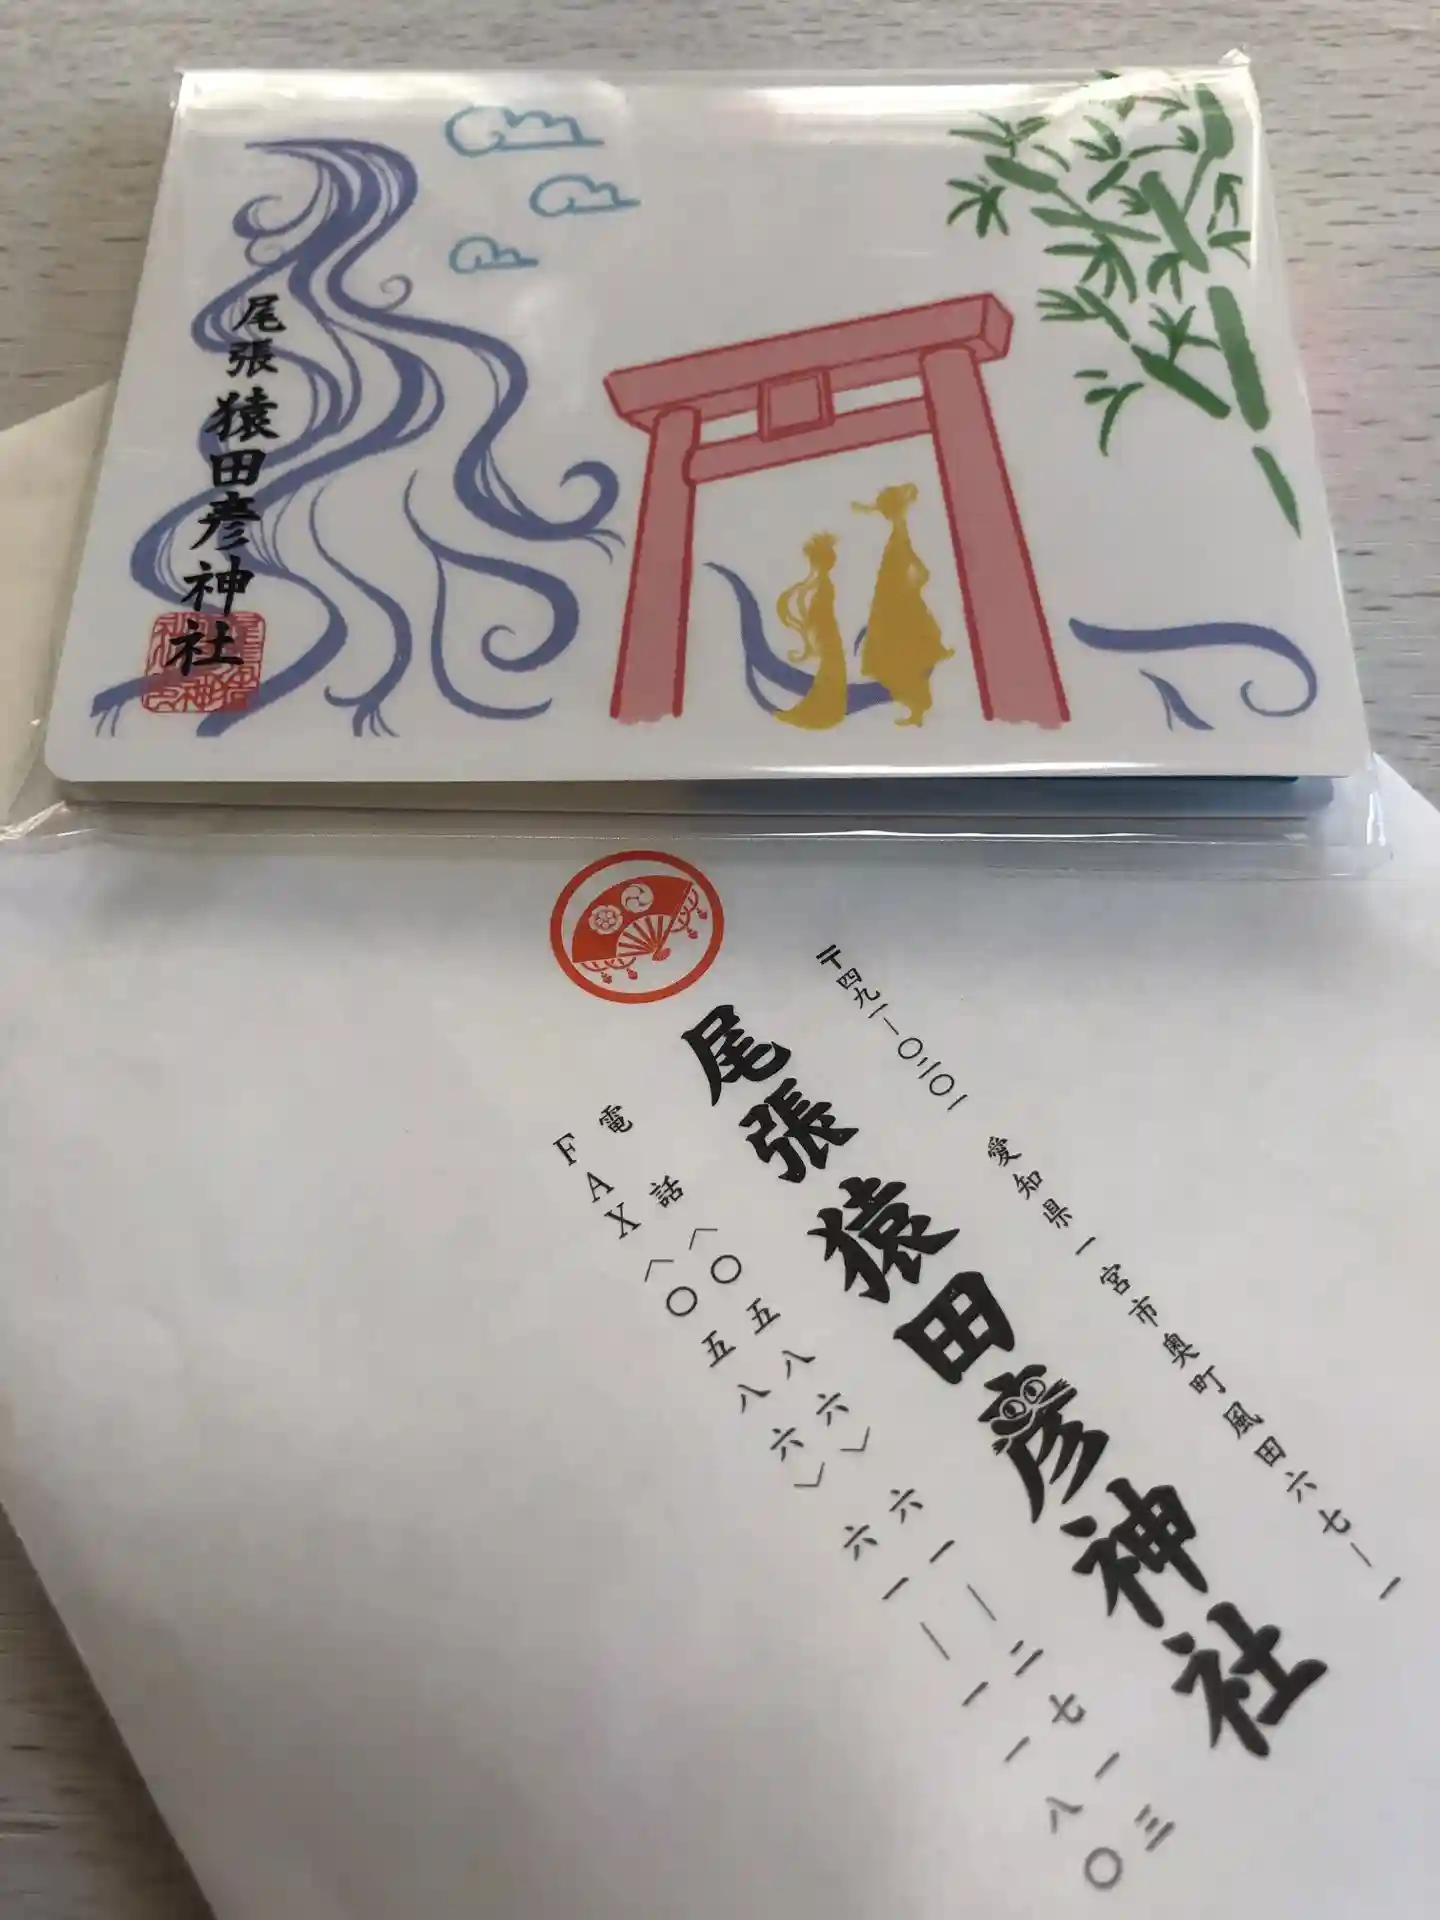 尾張猿田彦神社
〒四九一―〇二〇一 愛知県一宮市奥町風田六七―一
尾張猿田彦神社
電話〈〇五八六〉六一―二七一三
FAX〈〇五八六〉六一―一一八〇